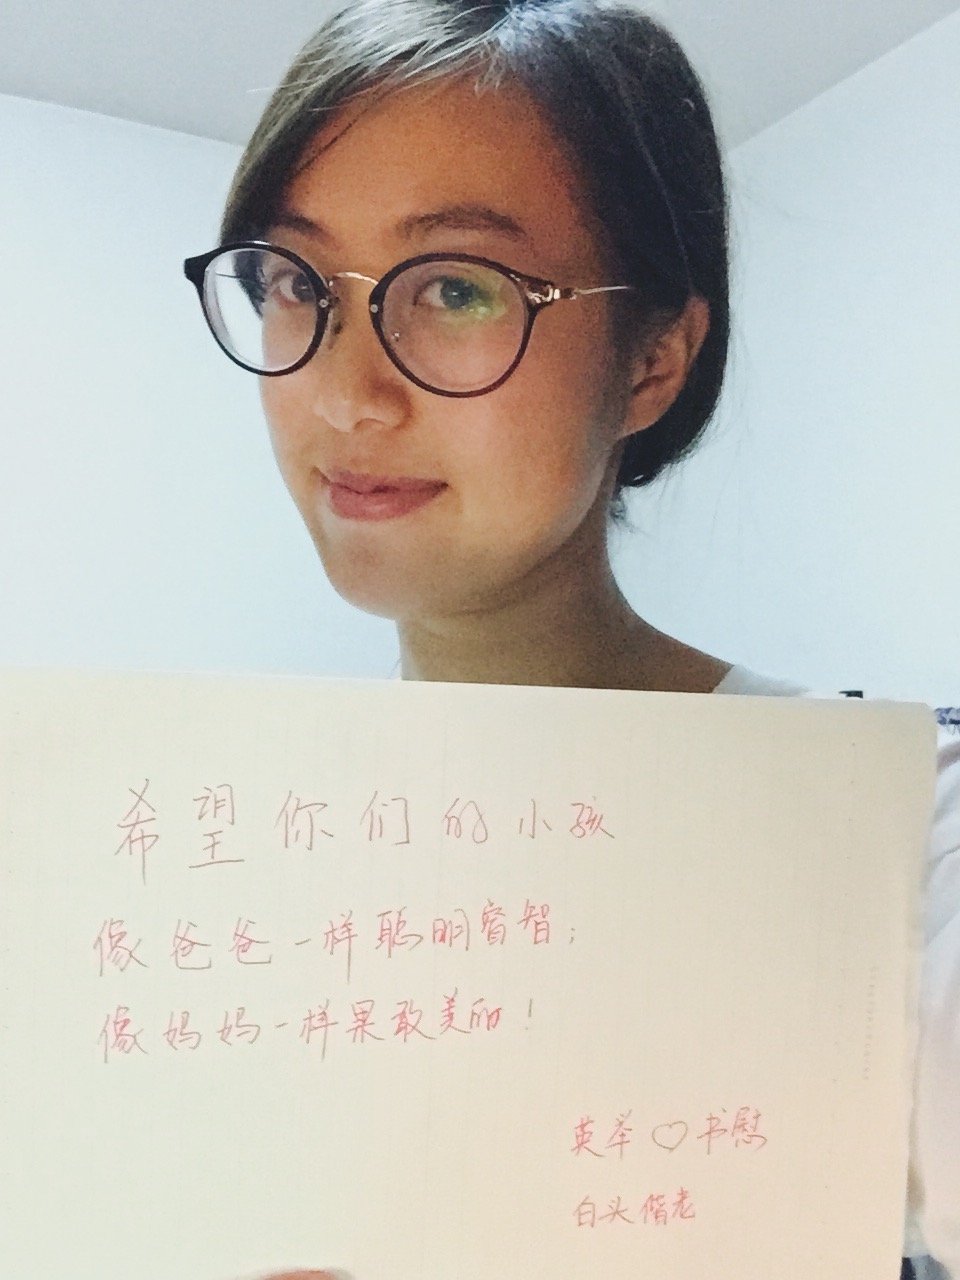 希望你们的小孩
像爸爸一样聪明睿智；
像妈妈一样果敢美丽！
英举♡书慰
白头偕老